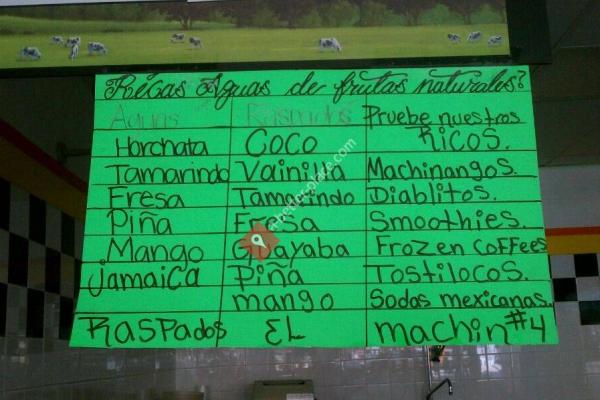 Ricas Aguas de frutas naturales?
Aguas Raspados Pruebe nuestros
Horchata Coco Ricos.
Tamarindo Vainilla Machinangos.
Fresa Tamarindo Diablitos.
Piña Fresa Smoothies.
Mango Guayaba Frozen Coffees
Jamaica Piña Tostilocos.
mango Sodas mexicanas.
Raspados El machin #4